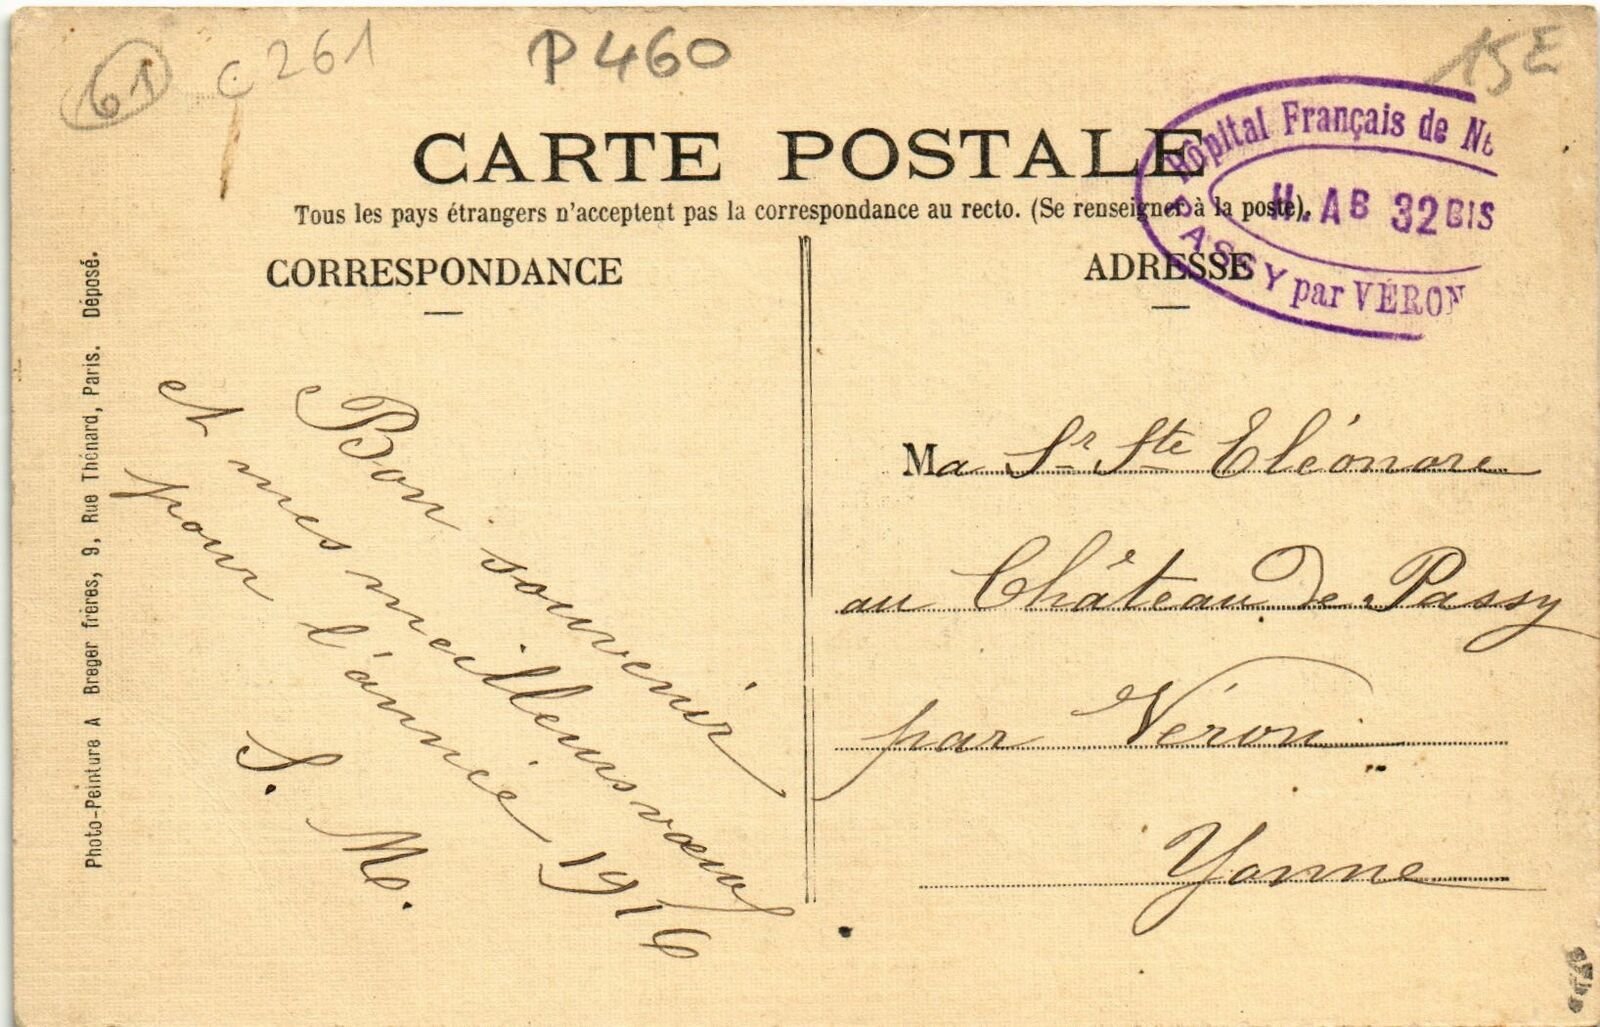 61
C 261
P 460
15E
CARTE POSTALE
Tous les pays étrangers n'acceptent pas la correspondance au recto. (Se renseigner à la poste).
Hôpital Français de
H. AB 32BIS
PASSY par VÉRON
CORRESPONDANCE
ADRESSE
Photo-Peinture A Breger frères, 9, Rue Thénard, Paris. Déposé.
Bon souvenir
et mes meilleurs vœux
pour l'année 1916
S. M.
Ma Sr Ste Eléonore
au Château de Passy
par Véron
Yonne